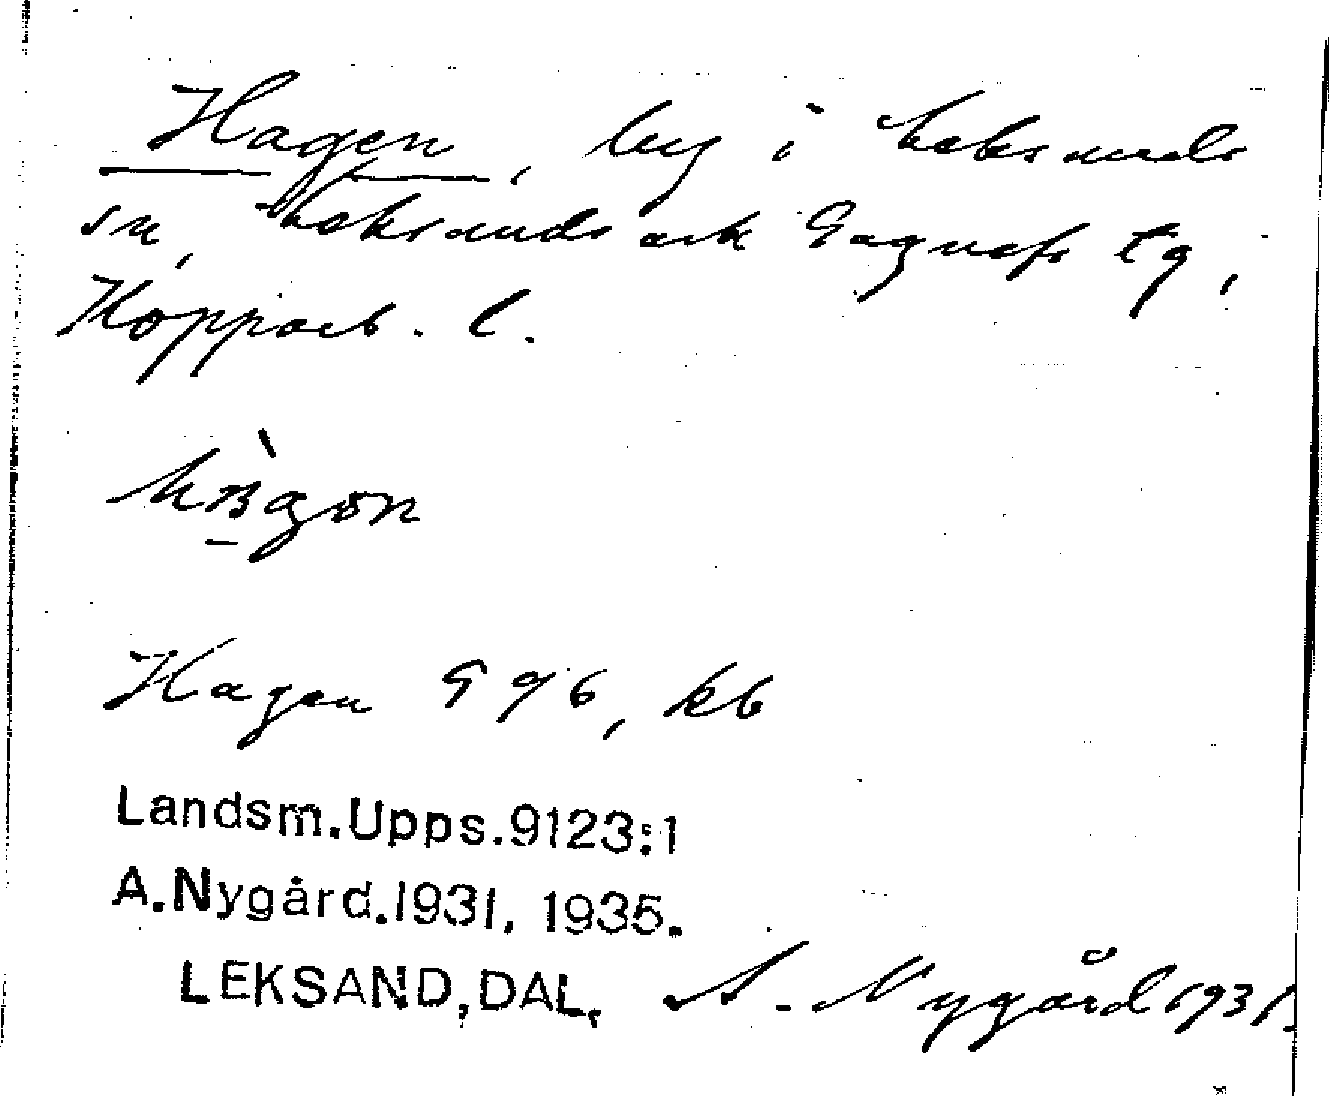 Hagen, by i Leksands
sn, Leksands och Gagnefs tg,
Kopparb. l.
Hagen G 96, kb
Landsm.Upps.9123:1
A.Nygård.1931, 1935.
LEKSAND, DAL.
A. Nygård 1931.